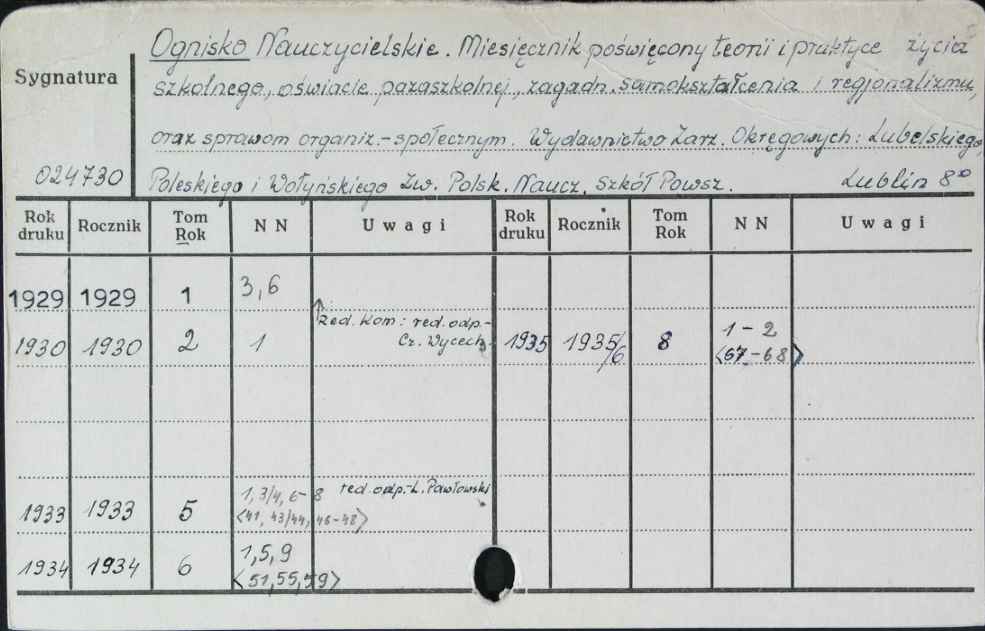 Ognisko Nauczycielskie. Miesięcznik poświęcony teorii i praktyce życia
Sygnatura
szkolnego, oświacie pozaszkolnej, zagadn. samokształcenia i regjonalizmu,
oraz sprawom organiz.-społecznym. Wydawnictwo Zarz. Okręgowych: Lubelskiego,
024730 Poleskiego i Wołyńskiego Zw. Polsk. Naucz. Szkół Powsz. Lublin 8°
Rok druku Rocznik Tom Rok N N Uwagi Rok druku Rocznik Tom Rok N N Uwagi
1929 1929 1 3,6
1930 1930 2 1 Red. Kom: red. odp.- Cz. Wycech 1935 1935/6 8 1-2 <67-68>
1933 1933 5 1, 3/4, 6-8 <41, 43/44, 46-48> red. odp.-L. Pawłowski
1934 1934 6 1,5,9 <51,55,59>